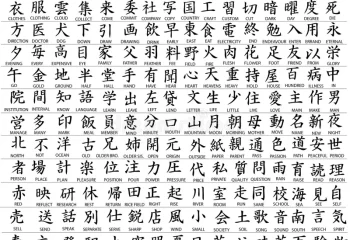 衣 服 雲 集 来 委 社 写 国 工 習 切 暗 度 死
CLOTHES CLOTHING CLOUD COLLECT COME COMMIT COMPANY COPY COUNTRY CRAFT CUSTOM CUT DARK DAY DEGREE DIE
方 医 犬 下 引 画 飲 早 東 食 電 終 勉 入 用 永
DIRECTION DOCTOR DOG DOWN DRAW DRAWING DRINK EARLY EAST EAT ELECTRICITY END ENDEAVOUR ENTER ERRAND ETERNAL
夕 毎 高 目 家 父 羽 料 野 火 肉 花 足 友 以 学
EVENING EVERY EXPENSIVE EYE FAMILY FATHER FEATHER FEE FIELD FIRE FLESH FLOWER FOOT FRIEND FROM
午 金 地 半 堂 手 有 心 天 重 持 屋 百 病 中
GOLD GROUND HALF HALL HAND HAVE HEART HEAVEN HEAVY HOLD HOUSE HUNDRED ILLNESS IN
院 間 知 語 学 左 貸 文 生 少 住 愛 作 男
INSTITUTION INTERVAL KNOW LANGUAGE LEARN LEFT LEND LETTER LIFE LITTLE LIVE LOVE MAKE MAN
営 多 印 飯 員 意 分 口 山 月 朝 母 動 名 新 夜
MANAGE MANY MARK MEAL MEMBER MIND MINUTE MOUTH MOUNTAIN MOON MORNING MOTHER MOVE NAME NEW NIGHT
北 不 洋 古 兄 姉 開 元 外 紙 親 通 色 道 安 世
NORTH NOT OCEAN OLD OLDER BRO. OLDER SIS. OPEN ORIGIN OUTSIDE PAPER PARENT PASS PATH PEACEFUL PERIOD
者 場 計 位 注 力 圧 代 私 質 問 雨 育 読 理
PERSON PLACE PLAN PLEASURE POSITION POUR POWER PRESSURE PRICE PRIVATE QUALITY QUESTION RAIN RAISE READ REASON
赤 映 研 休 帰 田 正 起 川 室 走 同 校 海 見 自
RED REFLECT RESEARCH REST RETURN RICE FIELD RIGHT RISE RIVER ROOM RUN SAME SCHOOL SEA SEE SELF
売 送 話 別 仕 店 風 小 会 土 歌 音 南 言 気
SELL SEND SPEAK SEPARATE SERVE SHARP SHOP WIND SMALL SOCIETY SOIL SONG SOUND SOUTH SPEECH SPIRIT